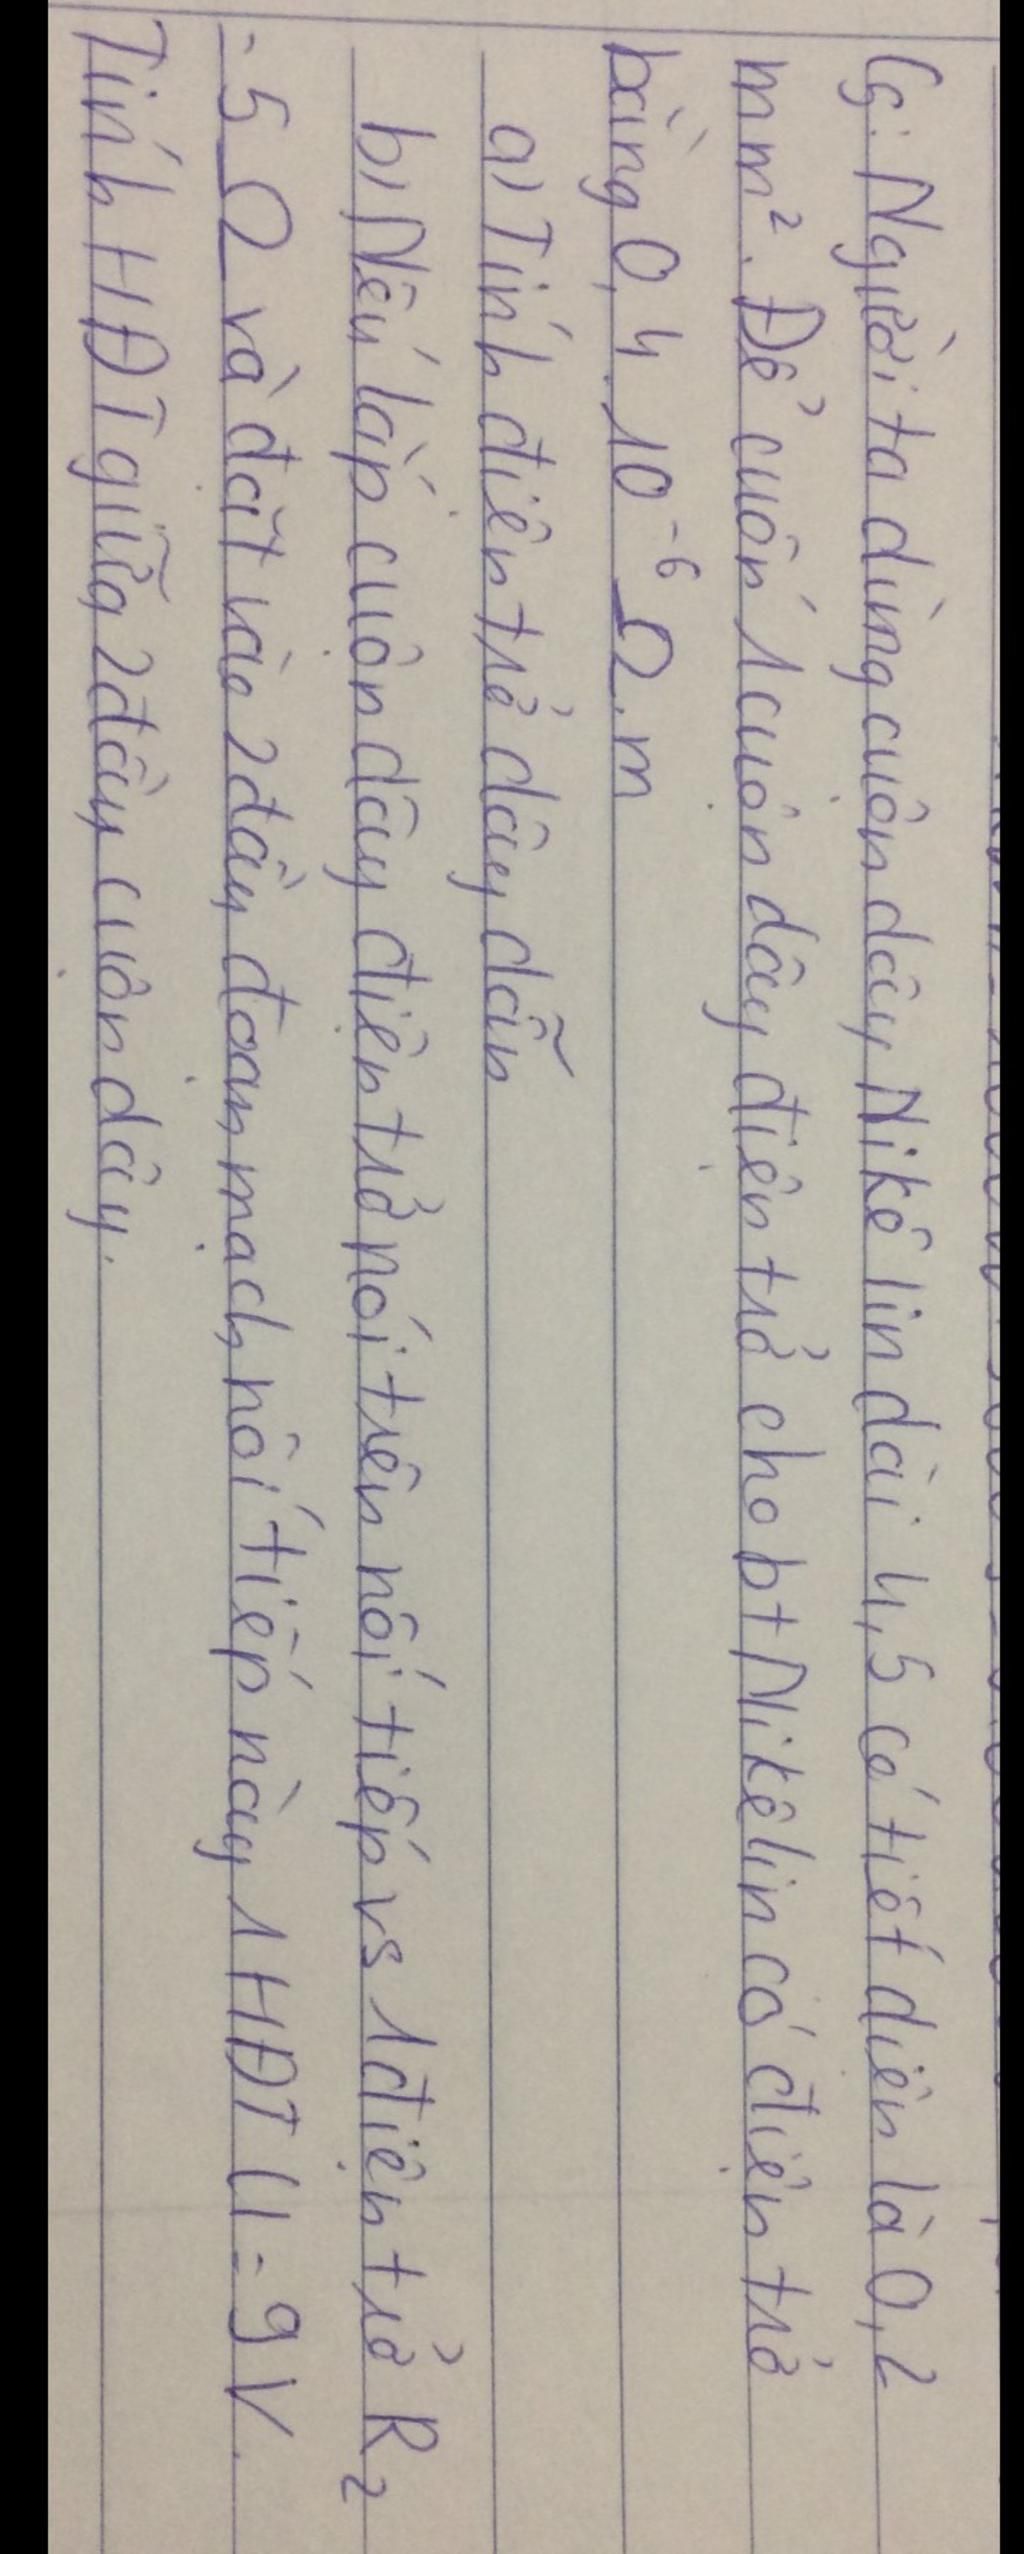 C5: Người ta dùng cuộn dây Nikêlin dài 4,5 có tiết diện là 0,2
mm². Để cuốn 1 cuộn dây điện trở cho bt Nikêlin có điện trở
bằng 0,4.10⁻⁶ Ω.m
a) Tính điện trở dây dẫn
b) Nếu lắp cuộn dây điện trở nói trên nối tiếp vs 1 điện trở R₂
= 5 Ω và đặt vào 2 đầu đoạn mạch nối tiếp này 1 HĐT U = 9V.
Tính HĐT giữa 2 đầu cuộn dây.